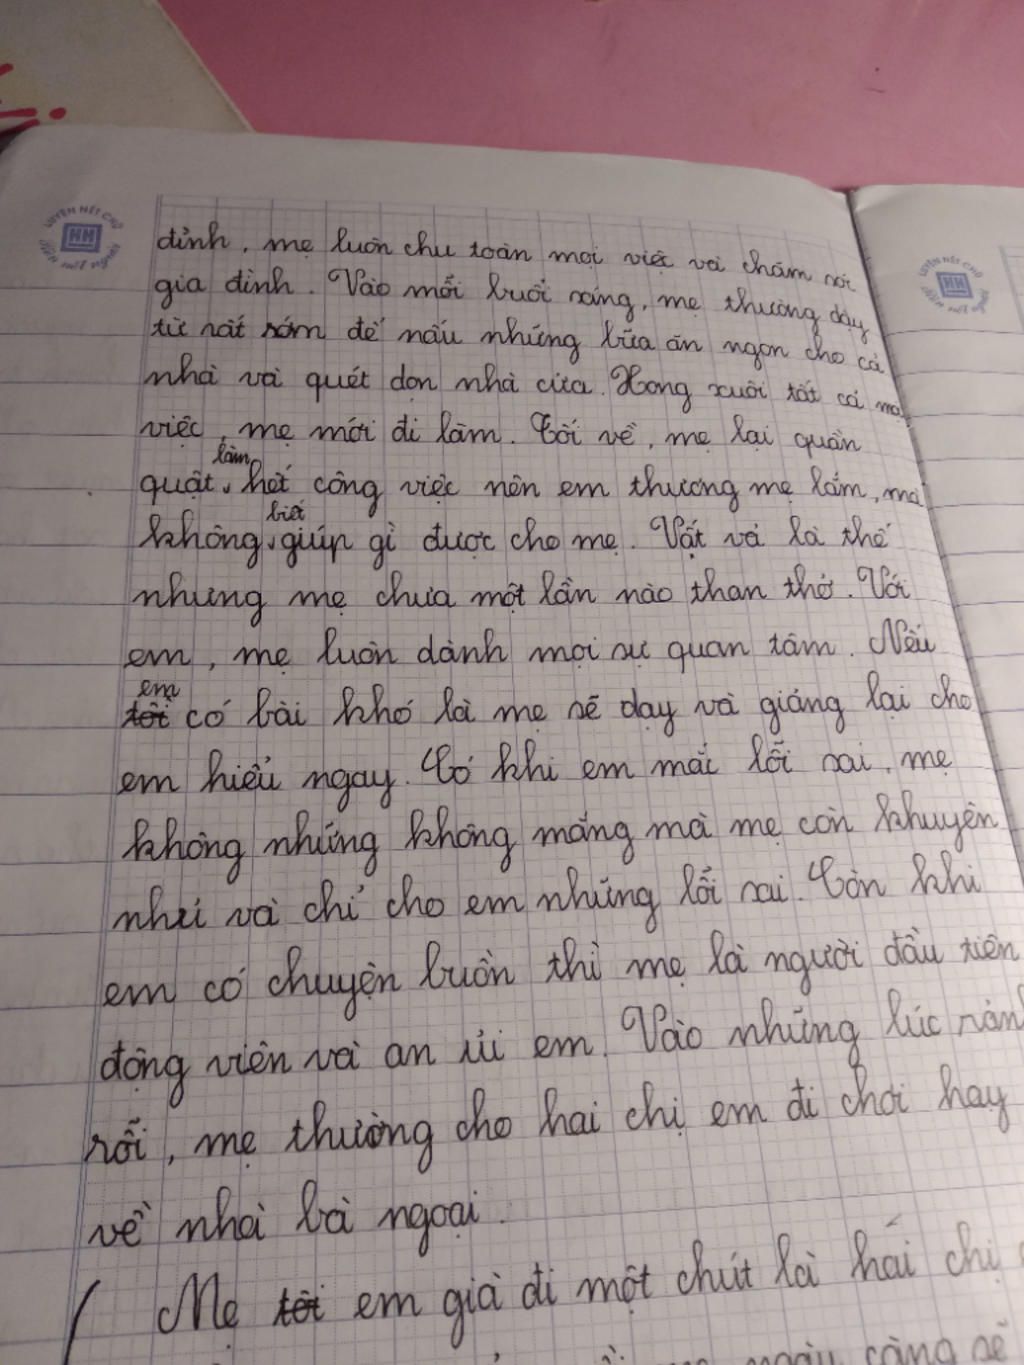 LUYỆN NÉT CHỮ
HH
RÈN NẾT NGƯỜI
đỉnh, mẹ luôn chu toàn mọi việc và chăm sóc
gia đình. Vào mỗi buổi sáng, mẹ thường dậy
từ rất sớm để nấu những bữa ăn ngon cho cả
nhà và quét dọn nhà cửa. Xong xuôi tất cả mọi
việc, mẹ mới đi làm. Tối về, mẹ lại quần
quật làm hết công việc nên em thương mẹ lắm, mà
không biết giúp gì được cho mẹ. Vất vả là thế
nhưng mẹ chưa một lần nào than thở. Với
em, mẹ luôn dành mọi sự quan tâm. Nếu
em có bài khó là mẹ sẽ dạy và giảng lại cho
em hiểu ngay. Có khi em mắc lỗi sai, mẹ
không những không mắng mà mẹ còn khuyên
nhủ và chỉ cho em những lỗi sai. Còn khi
em có chuyện buồn thì mẹ là người đầu tiên
động viên và an ủi em. Vào những lúc rảnh
rỗi, mẹ thường cho hai chị em đi chơi hay
về nhà bà ngoại.
Mẹ em già đi một chút là hai chị
ngày càng sẽ
LUYỆN NÉT CHỮ
HH
RÈN NẾT NGƯỜI